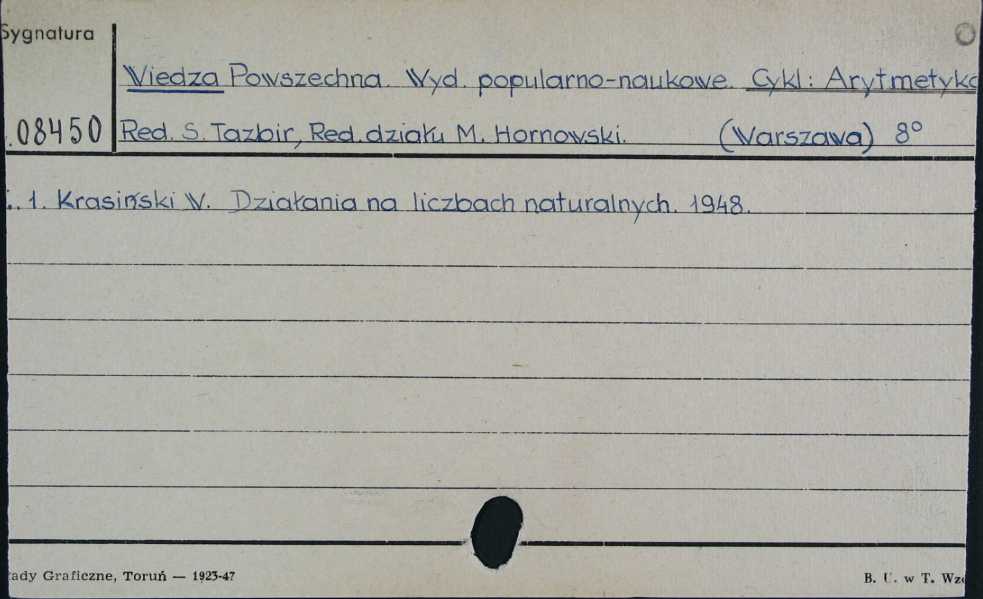 Sygnatura
Wiedza Powszechna. Wyd. popularno-naukowe. Cykl: Arytmetyka
08450 Red. S. Tazbir, Red. działu M. Hornowski. (Warszawa) 8°
1. Krasiński W. Działania na liczbach naturalnych. 1948.
Graficzne, Toruń — 1923-47
B. U. w T.